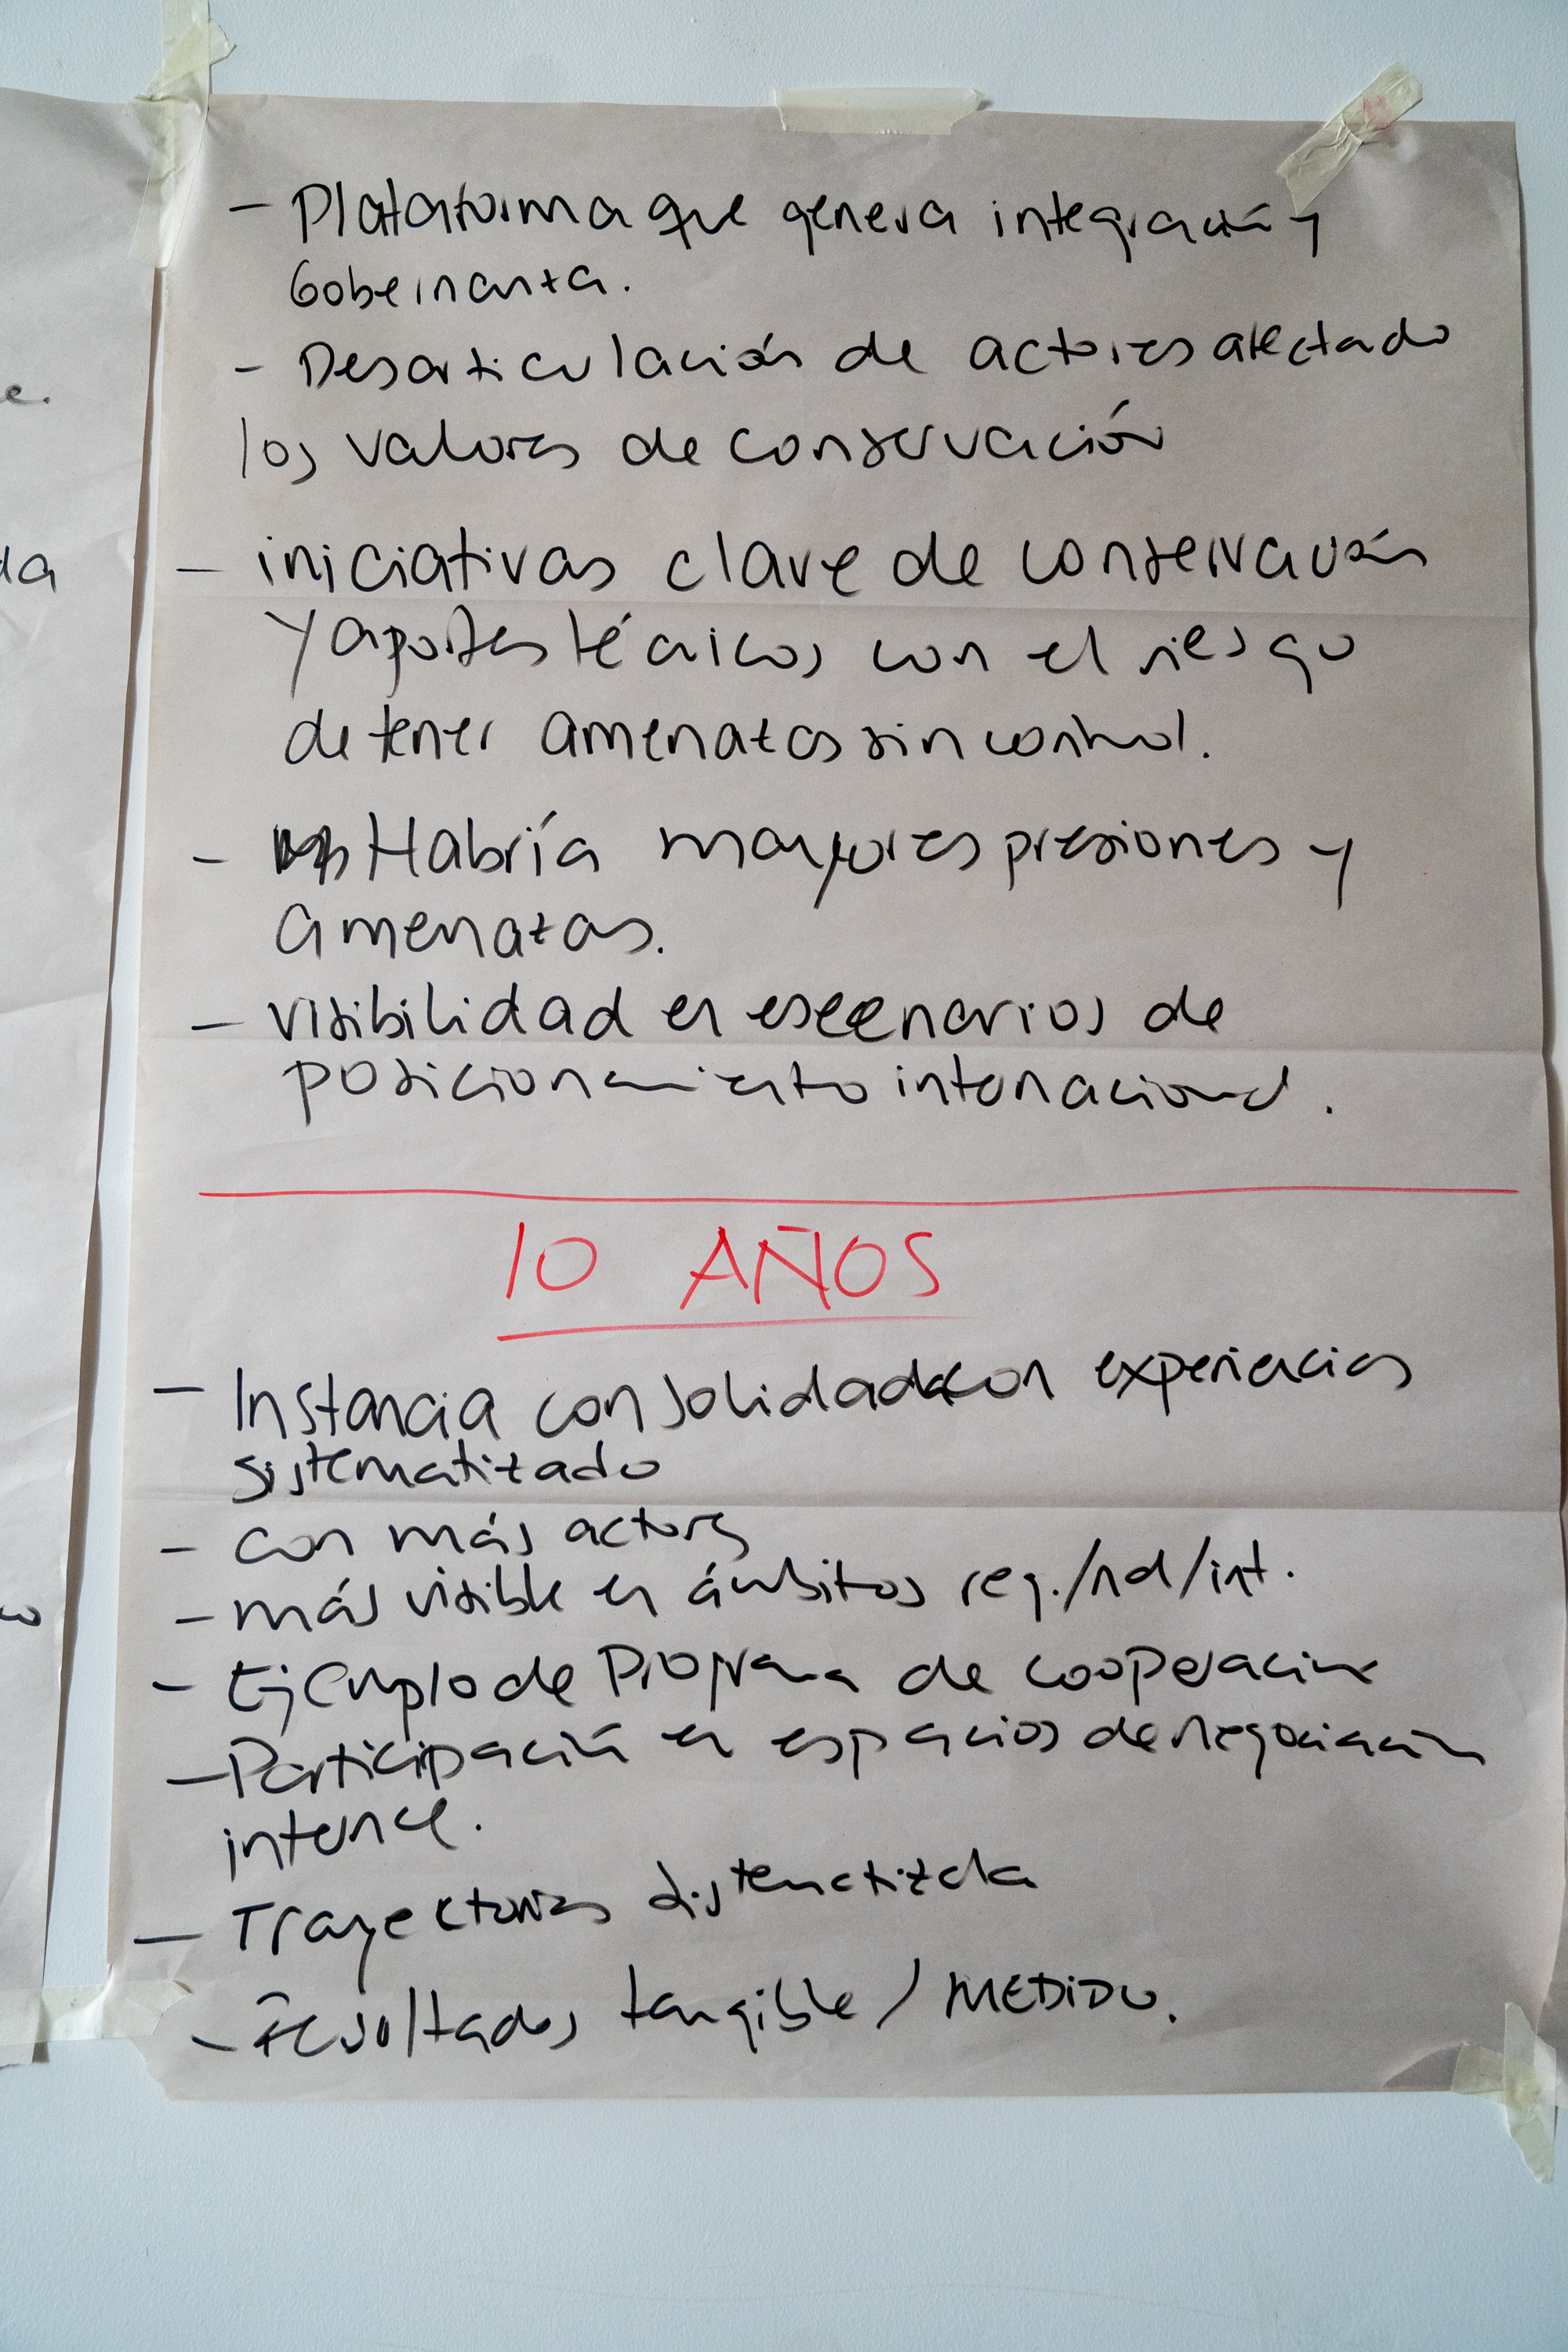 - Plataforma que genera integración y
Gobernanza.
- Desarticulación de actores afectado
los valores de conservación
- iniciativas clave de conservación
y aportes técnicos con el riesgo
de tener amenazas sin control.
- Habría mayores presiones y
amenazas.
- visibilidad en escenarios de
posicionamiento internacional.
10 AÑOS
- Instancia consolidada con experiencias
sistematizado
- con más actores
- más visible en ámbitos reg./nal/int.
- Ejemplo de Programa de cooperación
- Participación en espacios de negociación
- Trayectorias sistematizada
- Resultados tangible / MEDIDO.
e.
da